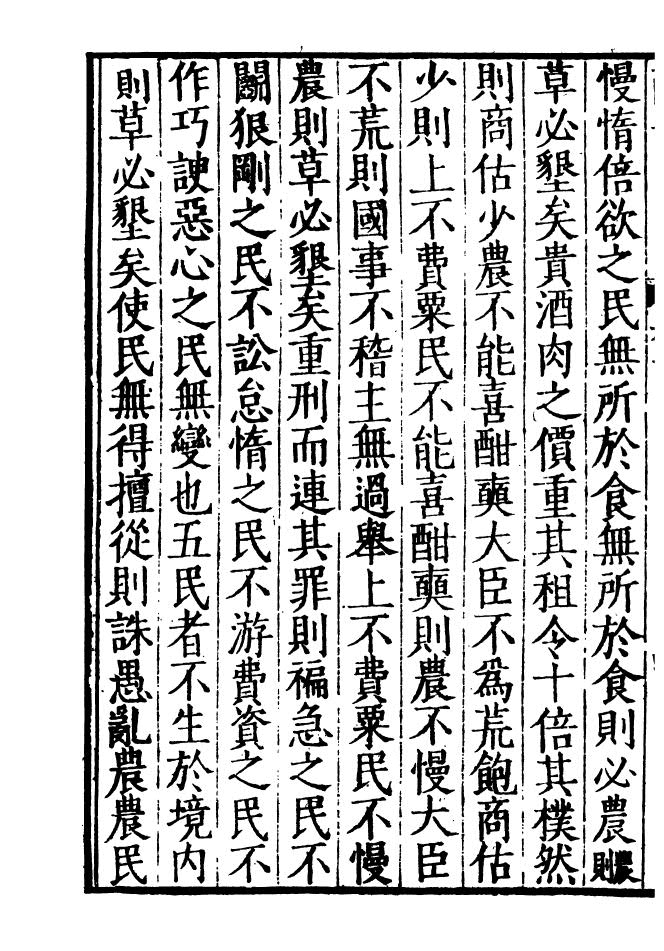 慢惰倍欲之民無所於食無所於食則必農農則
草必墾矣貴酒肉之價重其租令十倍其樸然
則商估少農不能喜酣奭大臣不爲荒飽商估
少則上不費粟民不能喜酣奭則農不慢大臣
不荒則國事不稽主無過舉上不費粟民不慢
農則草必墾矣重刑而連其罪則褊急之民不
鬭狠剛之民不訟怠惰之民不游費資之民不
作巧諛惡心之民無變也五民者不生於境内
則草必墾矣使民無得擅從則誅愚亂農農民